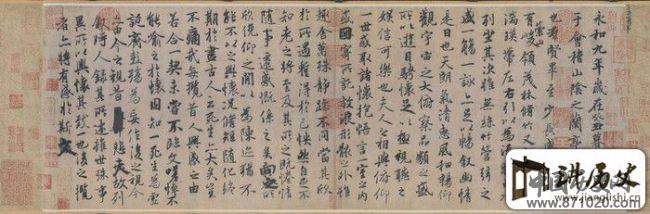 永和九年歲在癸丑
于會稽山陰之蘭亭
也羣賢畢至少長咸
有崇山峻領茂林脩竹
湍暎帶左右引以為流
列坐其次雖無絲竹管弦之
盛一觴一詠亦足以暢敘幽情
是日也天朗氣清惠風和暢仰
觀宇宙之大俯察品類之盛
所以遊目騁懷足以極視聽之
娛信可樂也夫人之相與俯仰
一世或取諸懷抱悟言一室之內
或因寄所託放浪形骸之外雖
趣舍萬殊靜躁不同當其欣
於所遇暫得於己怏然自足不
知老之將至及其所之既惓情
隨事遷感慨係之矣向之所
欣俛仰之間以為陳迹猶不
能不以之興懷況脩短隨化終
期於盡古人云死生亦大矣豈
不痛哉每攬昔人興感之由
若合一契未嘗不臨文嗟悼不
能喻之於懷固知一死生為虛
誕齊彭殤為妄作後之視今
亦由今之視昔悲夫故列
敘時人錄其所述雖世殊事
異所以興懷其致一也後之攬
者亦將有感於斯文
讲历史
www.jianglishi.cn
www.871020.com